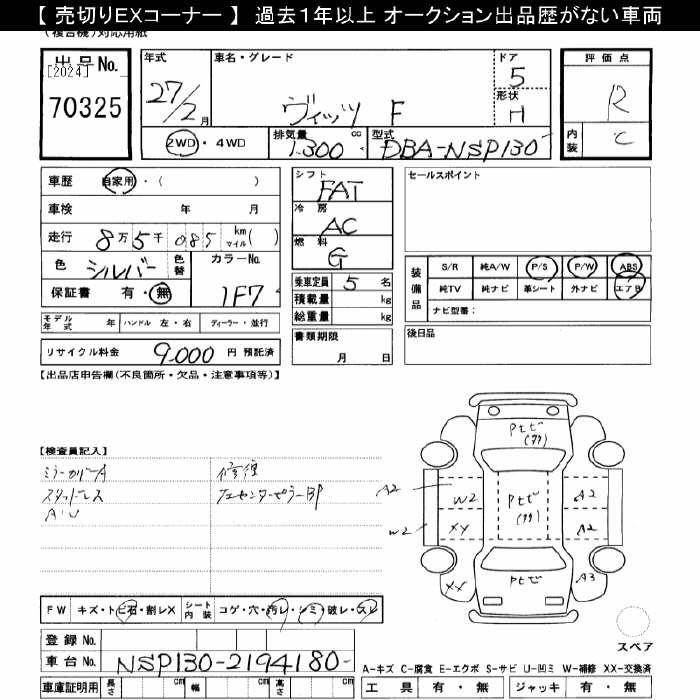 【 売切りEXコーナー 】 過去１年以上 オークション出品歴がない車両
(複合機)対応用紙
出品No.
[2024]
70325
年式
27/2月
車名・グレード
ヴィッツ F
ドア
5
形状
H
評価点
R
内装
C
2WD・4WD
排気量
1.300cc
型式
DBA-NSP130
車歴 自家用・( )
車検 年 月
走行 8万5千085 km マイル( )
色 シルバー 色替
カラーNo.
1F7
保証書 有・無
シフト
FAT
冷房
AC
燃料
G
乗車定員 5名
積載量 kg
総重量 kg
セールスポイント
装備品
S/R 純A/W P/S P/W ABS
純TV 純ナビ 革シート 外ナビ エアB
ナビ型番:
モデル年式 年 ハンドル 左・右 ディーラー・並行
リサイクル料金 9,000円 預託済
書類期限
月 日
後日品
【出品店申告欄(不良箇所・欠品・注意事項等)】
【検査員記入】
ミラーカバーA
スタッドレス
A・U
修復
センターピラーBP
Pセビ
(クリ)
A2
W2
Pセビ
(クリ)
A2
W2
XX
A2
XX
Pセビ
A3
FW キズ・トビ石・割レX
シート内装 コゲ・穴・汚レ・シミ・破レ・スレ
登録No.
車台No. NSP130-2194180-
車庫証明用 長さ cm 幅 cm 高さ cm
スペア
A-キズ C-腐食 E-エクボ S-サビ U-凹ミ W-補修 XX-交換済
工具 有・無 ジャッキ 有・無